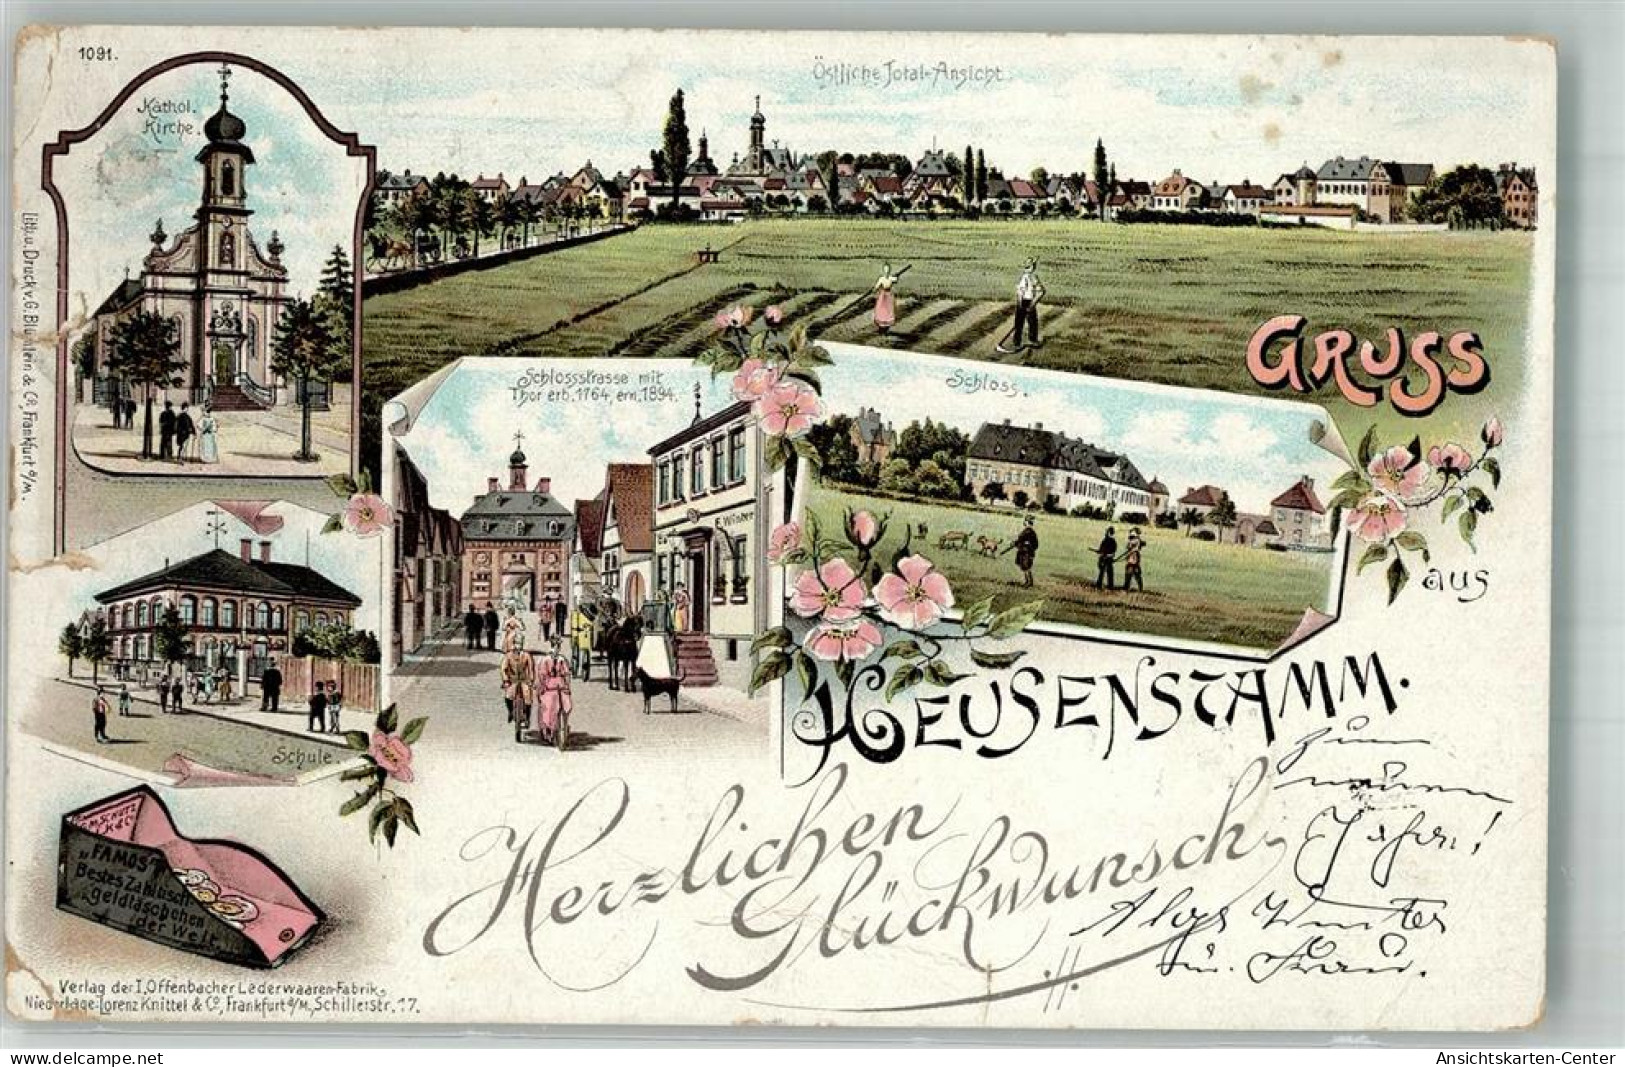 1091.
Kathol.
Kirche.
Östliche Total-Ansicht
GRUSS
aus
HEUSENSTAMM.
Schlossstrasse mit
Thor erb. 1764, ern. 1894.
F. Winter
Schloss.
Schule.
Lith. u. Druck v. G. Blümlein & Co., Frankfurt a/M.
Herzlichen
Glückwunsch
zum
neuen
Jahr!
Aloys Winter
u. Frau.
"FAMOS"
Bestes Zahltisch-
geldtäschchen
der Welt
Verlag der I. Offenbacher Lederwaaren-Fabrik.
Niederlage: Lorenz Knittel & Co., Frankfurt a/M., Schillerstr. 17.
delcampe.net
Ansichtskarten-Center